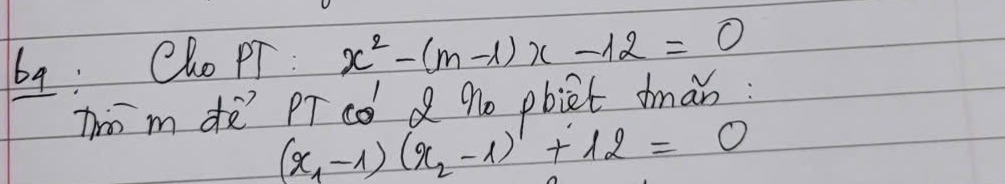 b9: Cho PT: x² - (m-1)x - 12 = 0
Tìm m để PT có 2 no pbiệt tmãn:
(x₁-1)(x₂-1) + 12 = 0